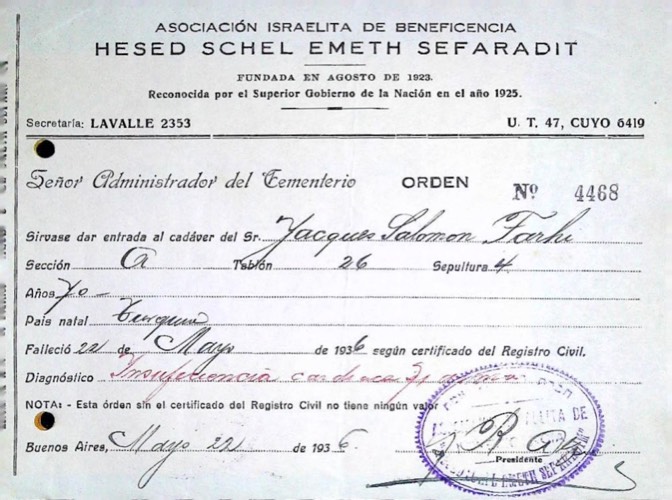 ASOCIACIÓN ISRAELITA DE BENEFICENCIA
HESED SCHEL EMETH SEFARADIT
FUNDADA EN AGOSTO DE 1923.
Reconocida por el Superior Gobierno de la Nación en el año 1925.
Secretaría: LAVALLE 2353 U. T. 47, CUYO 6419
Señor Administrador del Cementerio ORDEN Nº 4468
Sirvase dar entrada al cadáver del Sr. Jacques Salomon Farhi
Sección A Tablón 26 Sepultura 4
Años 70
País natal Turquia
Falleció 22 de Mayo de 1936 según certificado del Registro Civil.
Diagnóstico Insuficiencia cardiaca
NOTA: - Esta órden sin el certificado del Registro Civil no tiene ningún valor
Buenos Aires, Mayo 22 de 1936
Presidente